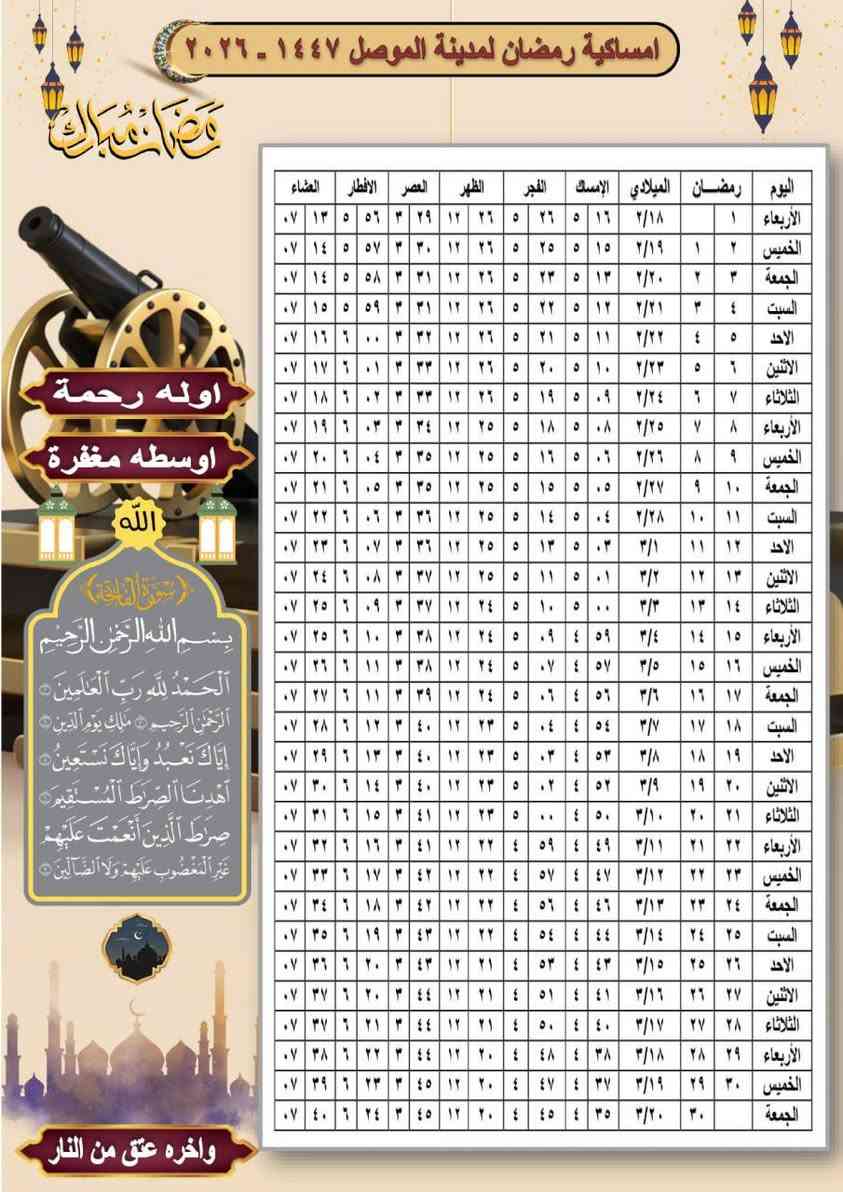 امساكية رمضان لمدينة الموصل ١٤٤٧ ـ ٢٠٢٦
رمضان مبارك
اليوم رمضـــان الميلادي الإمساك الفجر الظهر العصر الأفطار العشاء
الأربعاء ١ ٢/١٨ ١٦ ٥ ٢٦ ٥ ٢٦ ١٢ ٢٩ ٣ ٥٦ ٥ ١٣ ٠٧
الخميس ٢ ١ ٢/١٩ ١٥ ٥ ٢٥ ٥ ٢٦ ١٢ ٣٠ ٣ ٥٧ ٥ ١٤ ٠٧
الجمعة ٣ ٢ ٢/٢٠ ١٣ ٥ ٢٣ ٥ ٢٦ ١٢ ٣١ ٣ ٥٨ ٥ ١٤ ٠٧
السبت ٤ ٣ ٢/٢١ ١٢ ٥ ٢٢ ٥ ٢٦ ١٢ ٣١ ٣ ٥٩ ٥ ١٥ ٠٧
الاحد ٥ ٤ ٢/٢٢ ١١ ٥ ٢١ ٥ ٢٦ ١٢ ٣٢ ٣ ٠٠ ٦ ١٦ ٠٧
الاثنين ٦ ٥ ٢/٢٣ ١٠ ٥ ٢٠ ٥ ٢٦ ١٢ ٣٣ ٣ ٠١ ٦ ١٧ ٠٧
الثلاثاء ٧ ٦ ٢/٢٤ ٠٩ ٥ ١٩ ٥ ٢٦ ١٢ ٣٣ ٣ ٠٢ ٦ ١٨ ٠٧
الأربعاء ٨ ٧ ٢/٢٥ ٠٨ ٥ ١٨ ٥ ٢٥ ١٢ ٣٤ ٣ ٠٣ ٦ ١٩ ٠٧
الخميس ٩ ٨ ٢/٢٦ ٠٦ ٥ ١٦ ٥ ٢٥ ١٢ ٣٥ ٣ ٠٤ ٦ ٢٠ ٠٧
الجمعة ١٠ ٩ ٢/٢٧ ٠٥ ٥ ١٥ ٥ ٢٥ ١٢ ٣٥ ٣ ٠٥ ٦ ٢١ ٠٧
السبت ١١ ١٠ ٢/٢٨ ٠٤ ٥ ١٤ ٥ ٢٥ ١٢ ٣٦ ٣ ٠٦ ٦ ٢٢ ٠٧
الاحد ١٢ ١١ ٣/١ ٠٣ ٥ ١٣ ٥ ٢٥ ١٢ ٣٦ ٣ ٠٧ ٦ ٢٣ ٠٧
الاثنين ١٣ ١٢ ٣/٢ ٠١ ٥ ١١ ٥ ٢٥ ١٢ ٣٧ ٣ ٠٨ ٦ ٢٤ ٠٧
الثلاثاء ١٤ ١٣ ٣/٣ ٠٠ ٥ ١٠ ٥ ٢٤ ١٢ ٣٧ ٣ ٠٩ ٦ ٢٥ ٠٧
الأربعاء ١٥ ١٤ ٣/٤ ٥٩ ٤ ٠٩ ٥ ٢٤ ١٢ ٣٨ ٣ ١٠ ٦ ٢٥ ٠٧
الخميس ١٦ ١٥ ٣/٥ ٥٧ ٤ ٠٧ ٥ ٢٤ ١٢ ٣٨ ٣ ١١ ٦ ٢٦ ٠٧
الجمعة ١٧ ١٦ ٣/٦ ٥٦ ٤ ٠٦ ٥ ٢٤ ١٢ ٣٩ ٣ ١١ ٦ ٢٧ ٠٧
السبت ١٨ ١٧ ٣/٧ ٥٤ ٤ ٠٤ ٥ ٢٣ ١٢ ٤٠ ٣ ١٢ ٦ ٢٨ ٠٧
الاحد ١٩ ١٨ ٣/٨ ٥٣ ٤ ٠٣ ٥ ٢٣ ١٢ ٤٠ ٣ ١٣ ٦ ٢٩ ٠٧
الاثنين ٢٠ ١٩ ٣/٩ ٥٢ ٤ ٠٢ ٥ ٢٣ ١٢ ٤٠ ٣ ١٤ ٦ ٣٠ ٠٧
الثلاثاء ٢١ ٢٠ ٣/١٠ ٥٠ ٤ ٠٠ ٥ ٢٣ ١٢ ٤١ ٣ ١٥ ٦ ٣١ ٠٧
الأربعاء ٢٢ ٢١ ٣/١١ ٤٩ ٤ ٥٩ ٤ ٢٢ ١٢ ٤١ ٣ ١٦ ٦ ٣٢ ٠٧
الخميس ٢٣ ٢٢ ٣/١٢ ٤٧ ٤ ٥٧ ٤ ٢٢ ١٢ ٤٢ ٣ ١٧ ٦ ٣٣ ٠٧
الجمعة ٢٤ ٢٣ ٣/١٣ ٤٦ ٤ ٥٦ ٤ ٢٢ ١٢ ٤٢ ٣ ١٨ ٦ ٣٤ ٠٧
السبت ٢٥ ٢٤ ٣/١٤ ٤٤ ٤ ٥٤ ٤ ٢٢ ١٢ ٤٣ ٣ ١٩ ٦ ٣٥ ٠٧
الاحد ٢٦ ٢٥ ٣/١٥ ٤٣ ٤ ٥٣ ٤ ٢١ ١٢ ٤٣ ٣ ٢٠ ٦ ٣٦ ٠٧
الاثنين ٢٧ ٢٦ ٣/١٦ ٤١ ٤ ٥١ ٤ ٢١ ١٢ ٤٤ ٣ ٢٠ ٦ ٣٧ ٠٧
الثلاثاء ٢٨ ٢٧ ٣/١٧ ٤٠ ٤ ٥٠ ٤ ٢١ ١٢ ٤٤ ٣ ٢١ ٦ ٣٧ ٠٧
الأربعاء ٢٩ ٢٨ ٣/١٨ ٣٨ ٤ ٤٨ ٤ ٢٠ ١٢ ٤٤ ٣ ٢٢ ٦ ٣٨ ٠٧
الخميس ٣٠ ٢٩ ٣/١٩ ٣٧ ٤ ٤٧ ٤ ٢٠ ١٢ ٤٥ ٣ ٢٣ ٦ ٣٩ ٠٧
الجمعة ٣٠ ٣/٢٠ ٣٥ ٤ ٤٥ ٤ ٢٠ ١٢ ٤٥ ٣ ٢٤ ٦ ٤٠ ٠٧
اوله رحمة
اوسطه مغفرة
الله
سُورَةُ الْفَاتِحَةِ
بِسْمِ اللهِ الرَّحْمَٰنِ الرَّحِيمِ
الْحَمْدُ لِلَّهِ رَبِّ الْعَالَمِينَ
الرَّحْمَٰنِ الرَّحِيمِ مَلِكِ يَوْمِ الدِّينِ
إِيَّاكَ نَعْبُدُ وَإِيَّاكَ نَسْتَعِينُ
اهْدِنَا الصِّرَاطَ الْمُسْتَقِيمَ
صِرَاطَ الَّذِينَ أَنْعَمْتَ عَلَيْهِمْ
غَيْرِ الْمَغْضُوبِ عَلَيْهِمْ وَلَا الضَّالِّينَ
واخره عتق من النار